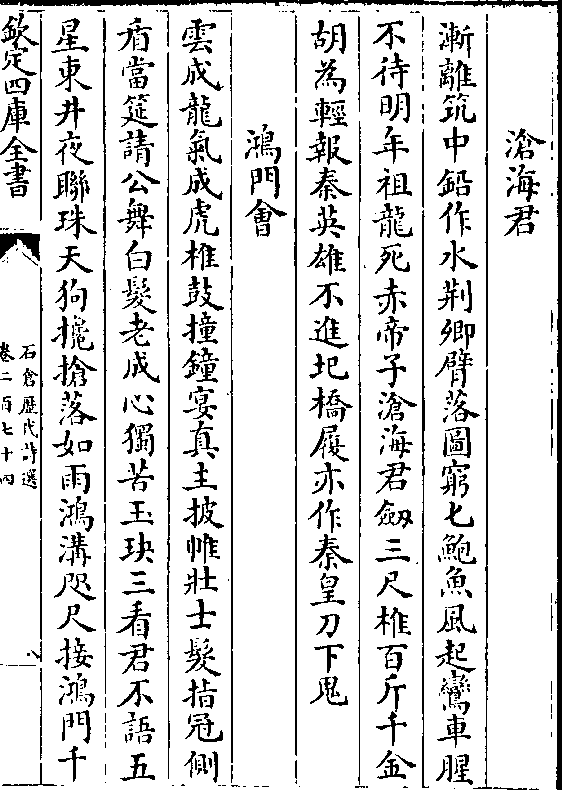 滄海君
漸離筑中鉛作水荆卿臂落圖窮匕鮑魚風起鸞車腥
不待明年祖龍死赤帝子滄海君劔三尺椎百斤千金
胡為輕報秦英雄不進圯橋履亦作秦皇刀下鬼
鴻門會
雲成龍氣成虎椎鼓撞鐘宴真主披帷壯士髮指冠側
盾當筵請公舞白髮老成心獨苦玉玦三看君不語五
星東井夜聯珠天狗攙搶落如雨鴻溝咫尺接鴻門千
欽定四庫全書
石倉歴代詩選
卷二百七十四
八